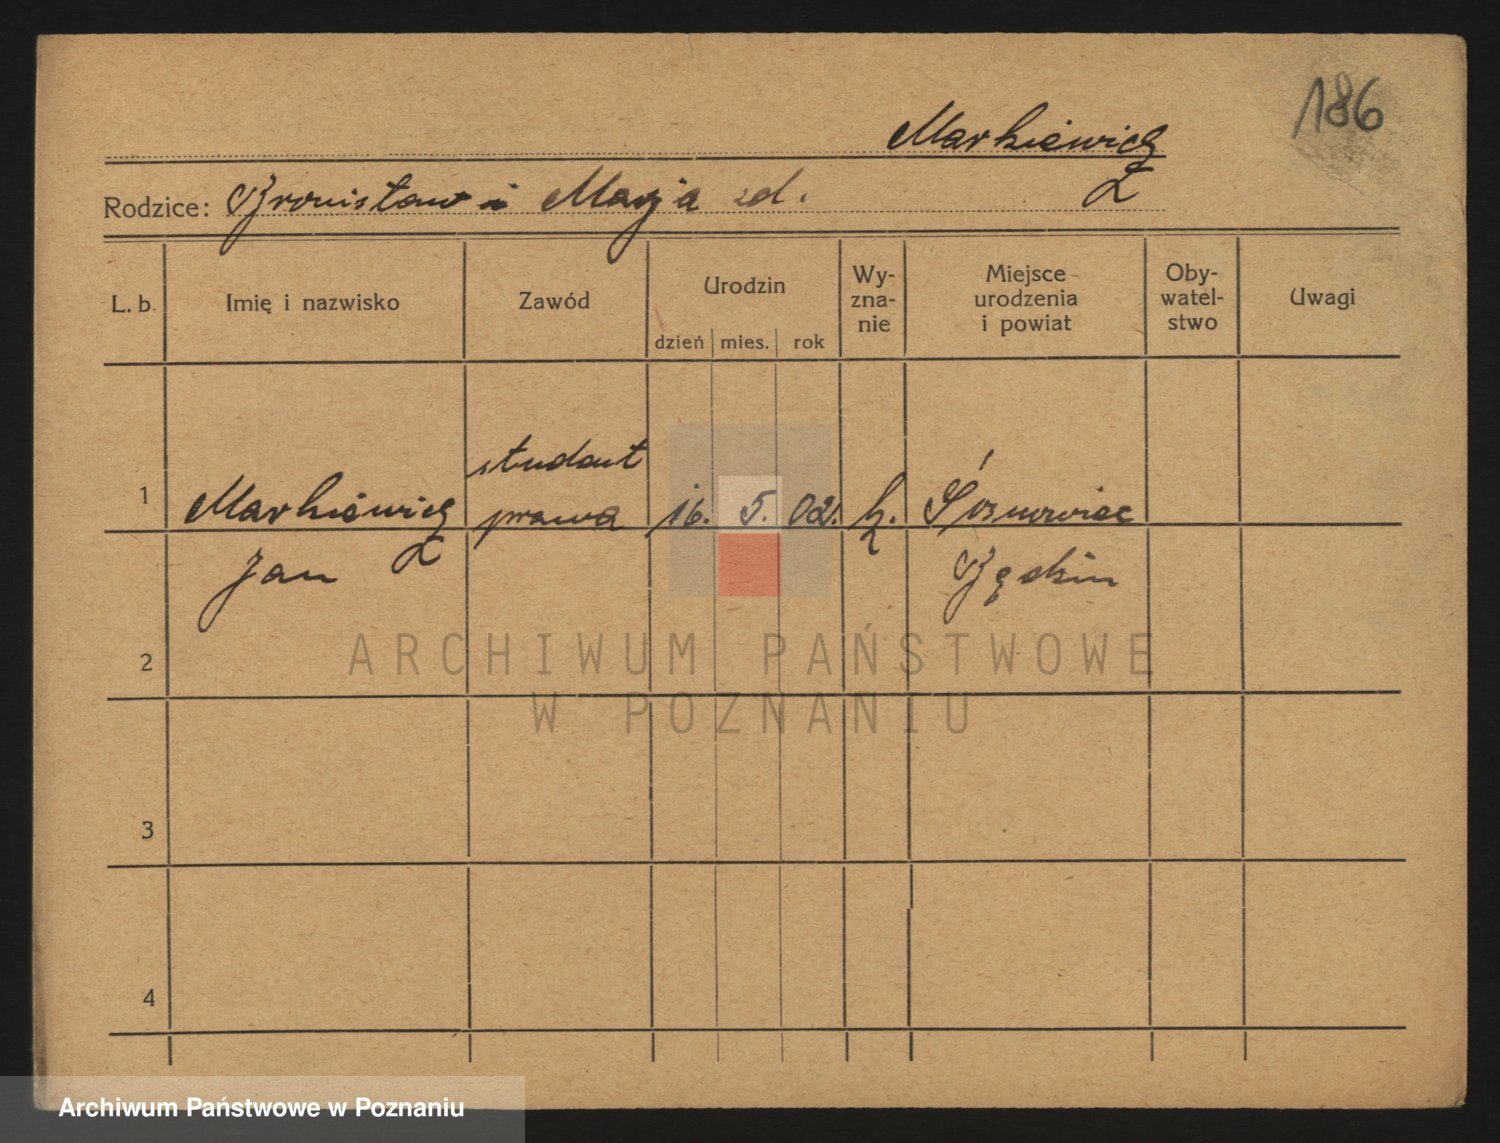 186
Markiewicz
Rodzice: Bronisław i Marja zd.
L. b. Imię i nazwisko Zawód Urodzin Wy-zna-nie Miejsce urodzenia i powiat Oby-watel-stwo Uwagi
dzień mies. rok
student
1 Markiewicz prawa 16. 5. 02. k. Sosnowiec
Jan Będzin
2
ARCHIWUM PAŃSTWOWE
W POZNANIU
3
4
Archiwum Państwowe w Poznaniu